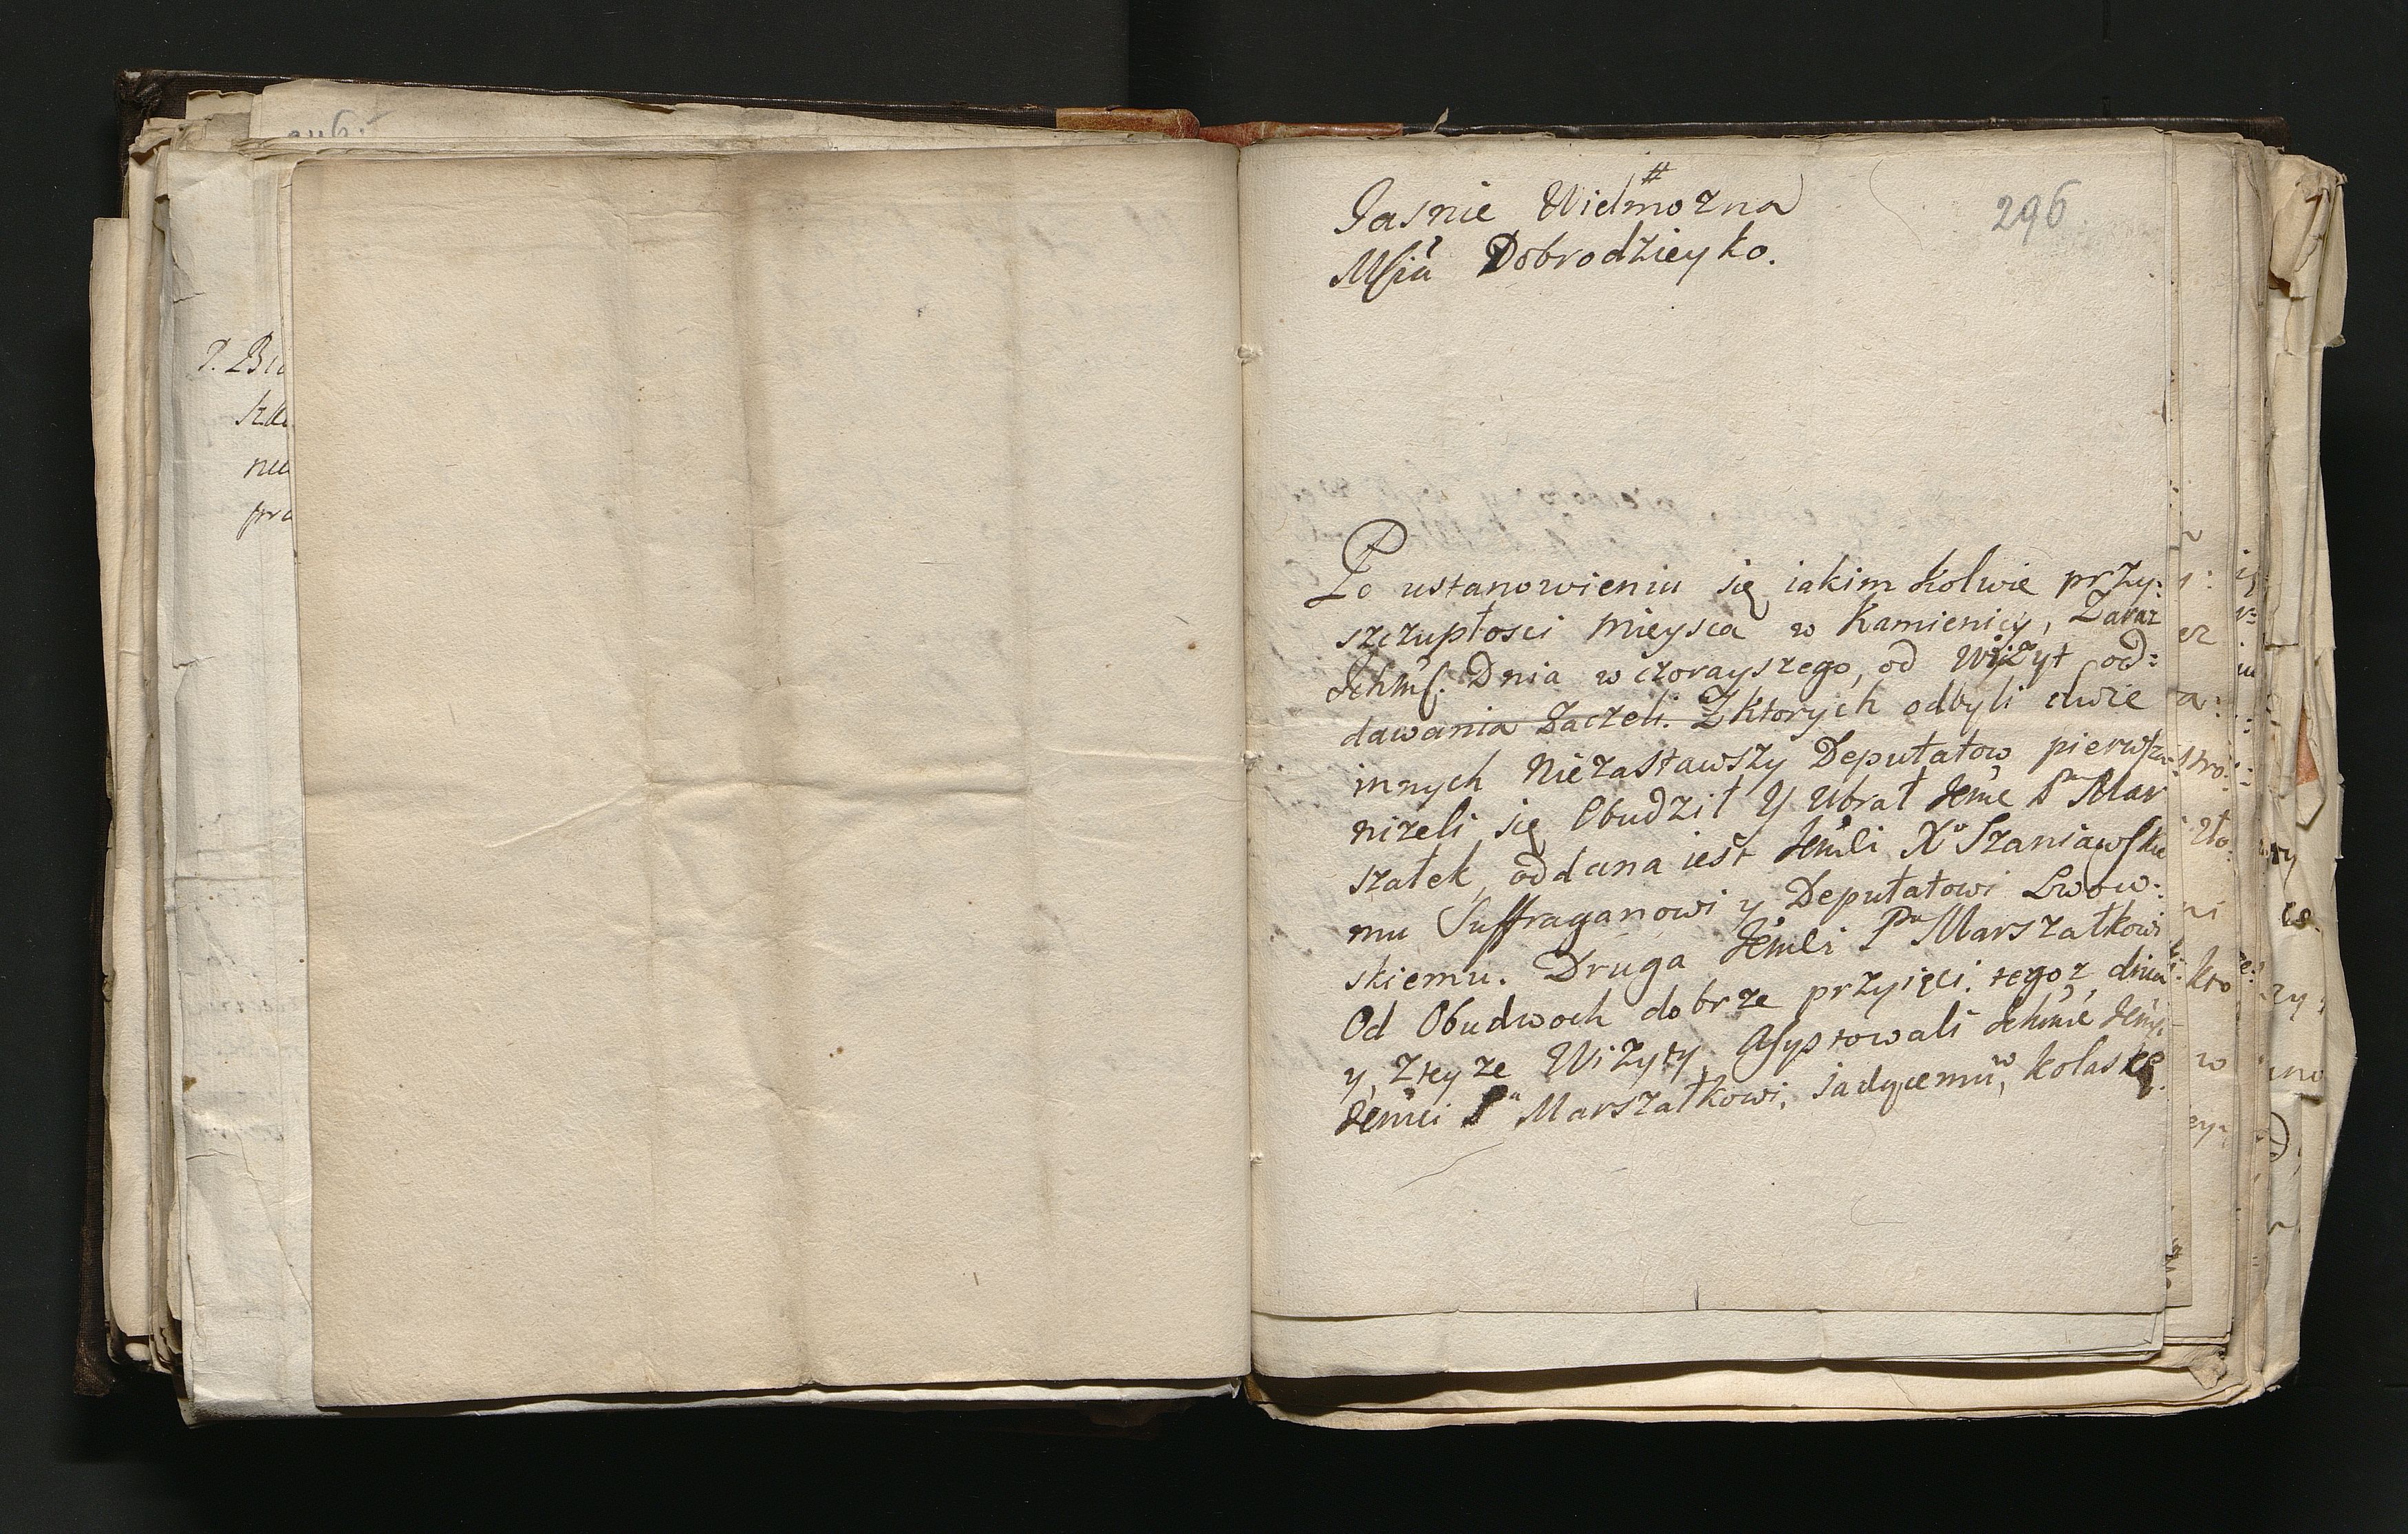 #
Jasnie Wielmozna
296
Mſia Dobrodzieyko.
Po ustanowieniu się iakim kolwie przy:
szczupłosci mieysca w Kamienicy, Zaraz
Ichmſ. Dnia wczorayszego, od Wizyt od:
dawania Zaczeli. Zktorych odbyli dwie
innych niezastawszy Deputatow pierwſza:
nizeli się Obudził y Ubrał Jemć Pn Mar
szałek, oddana iest Jemći Xu Szaniawſkie
mu Suffraganowi y Deputatowi Lwow:
skiemu. Druga Jemći Pu Marszałkowi
Od Obudwoch dobrze przyięci. tegoz dnia
y, Zteyze Wizyty, Aſystowali Ichmć
Jemći Pu Marszałkowi, iadącemu w kolaskę.